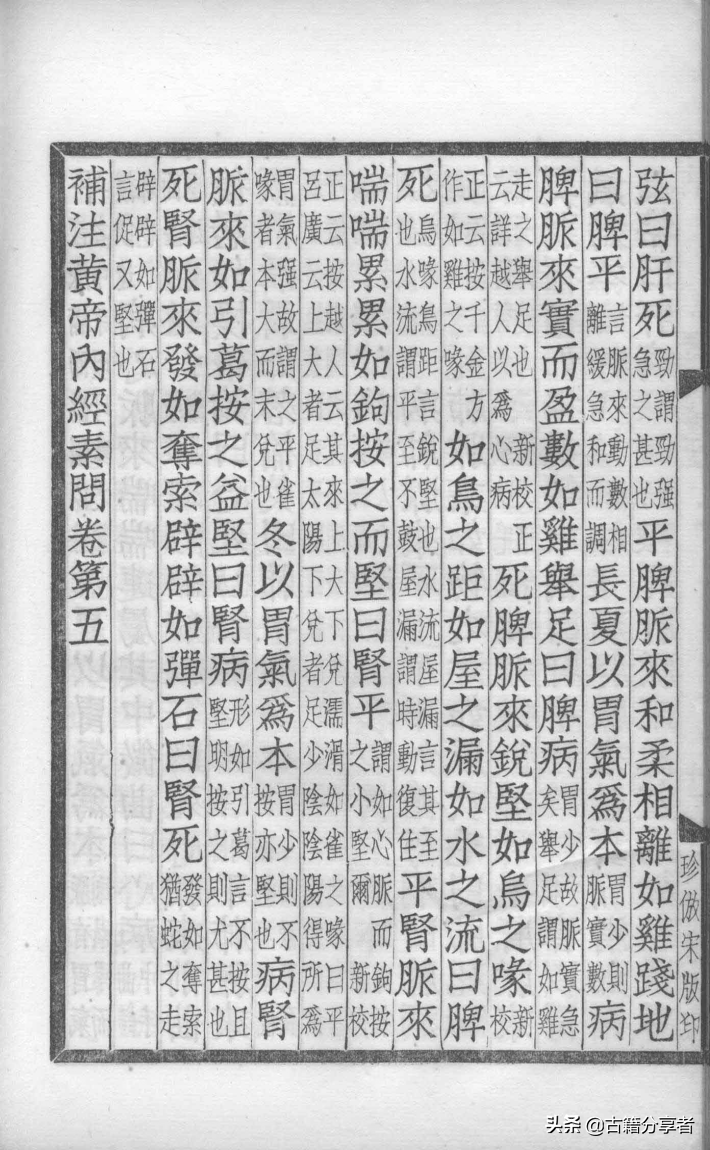 弦曰肝死勁謂勁强急之甚也平脾脈來和柔相離如雞踐地
曰脾平言脈來動數相離緩急和而調長夏以胃氣爲本胃少則脈實數病
脾脈來實而盈數如雞舉足曰脾病胃少故脈實急矣舉足謂如雞
走之舉足也 新校正云詳越人以爲心病死脾脈來銳堅如烏之喙新校
正云按千金方作如雞之喙如鳥之距如屋之漏如水之流曰脾
死烏喙鳥距言銳堅也水流屋漏言其至也水流謂平至不鼓屋漏謂時動復住平腎脈來
喘喘累累如鉤按之而堅曰腎平謂如心脈而鉤按之小堅爾 新校
正云按越人云其來上大下兌濡滑如雀之喙曰平呂廣云上大者足太陽下兌者足少陰陰陽得所爲
胃氣强故謂之平雀喙者本大而末兌也冬以胃氣爲本胃少則不按亦堅也病腎
脈來如引葛按之益堅曰腎病形如引葛言不按且堅明按之則尤甚也
死腎脈來發如奪索辟辟如彈石曰腎死發如奪索猶蛇之走
辟辟如彈石言促又堅也
補注黃帝內經素問卷第五
珍倣宋版印
头条 @古籍分享者